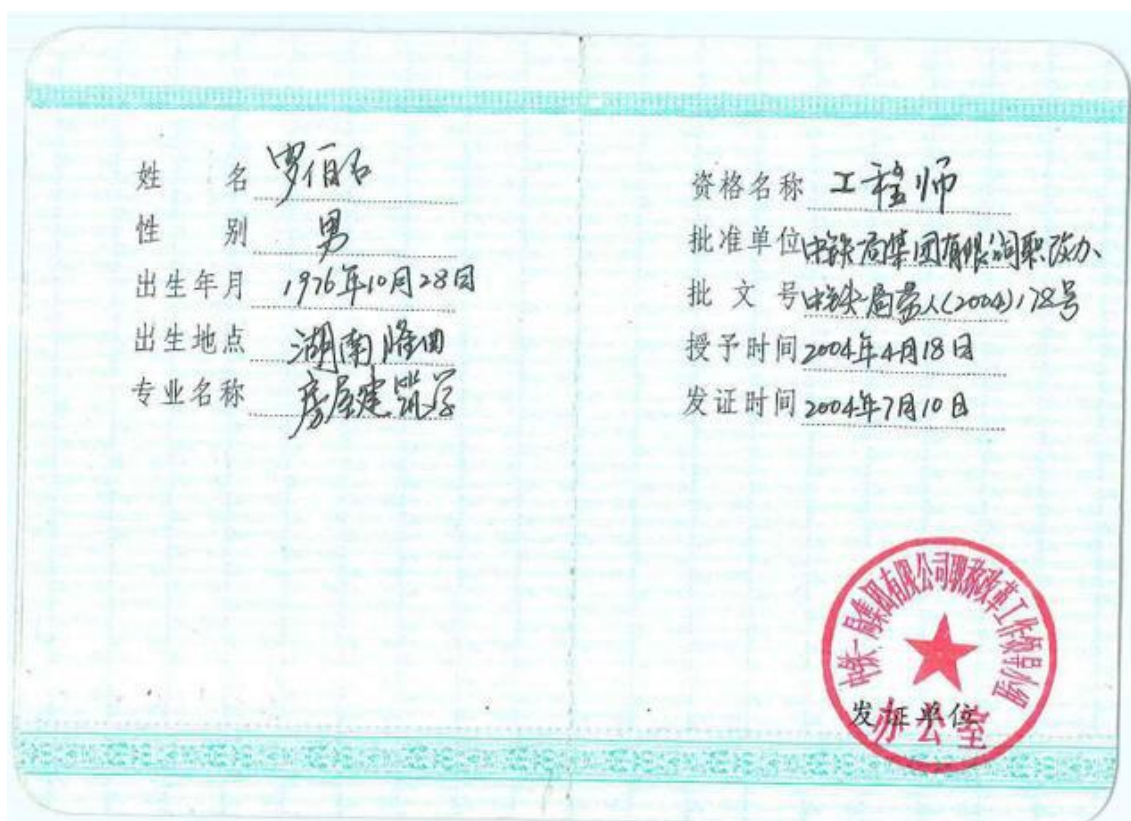 姓 名 罗伯石
性 别 男
出生年月 1976年10月28日
出生地点 湖南隆回
专业名称 房屋建筑学
资格名称 工程师
批准单位 中铁一局集团有限公司职改办
批 文 号 中铁一局劳人(2004)178号
授予时间 2004年4月18日
发证时间 2004年7月10日
中铁一局集团有限公司职称改革工作领导小组
办公室
发证单位